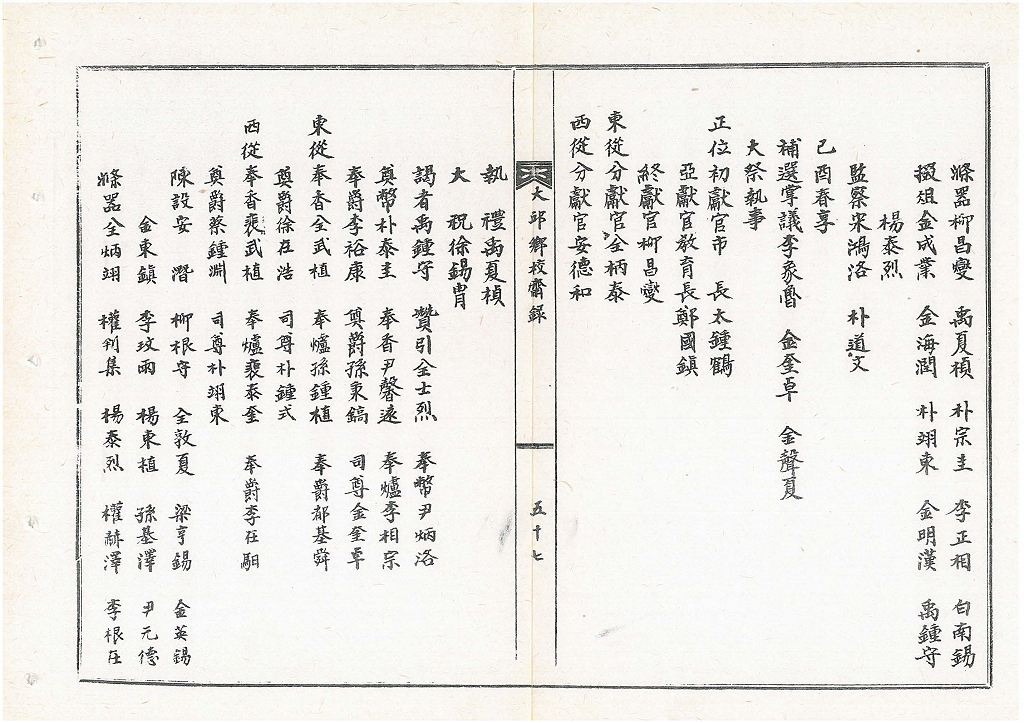 滌器柳昌燮 禹夏楨 朴宗圭 李正相 白南錫
掇俎金成業 金海潤 朴翊東 金明漢 禹鍾守
楊泰烈
監察宋鴻洛 朴道文
己酉春享
補選掌議李象魯 金奎卓 金聲夏
大祭執事
正位初獻官市 長太鍾鶴
亞獻官教育長鄭國鎮
終獻官柳昌燮
東從分獻官全柄泰
西從分獻官安德和
大邱鄉校齋錄
五十七
執 禮禹夏楨
大 祝徐錫胄
謁者禹鍾守 贊引金士烈 奉幣尹炳洛
奠幣朴泰圭 奉香尹馨遠 奉爐李相宗
奉爵李裕康 奠爵孫秉鎬 司尊金奎卓
東從奉香全武植 奉爐孫鍾植 奉爵都基舜
奠爵徐在浩 司尊朴鍾式
西從奉香裵武植 奉爐裵泰奎 奉爵李在馹
奠爵蔡鍾淵 司尊朴翊東
陳設安 潛 柳根守 全敦夏 梁亨錫 金英錫
金東鎮 李玟雨 楊東植 孫基澤 尹元德
滌器全炳翊 權利集 楊泰烈 權赫澤 李根在